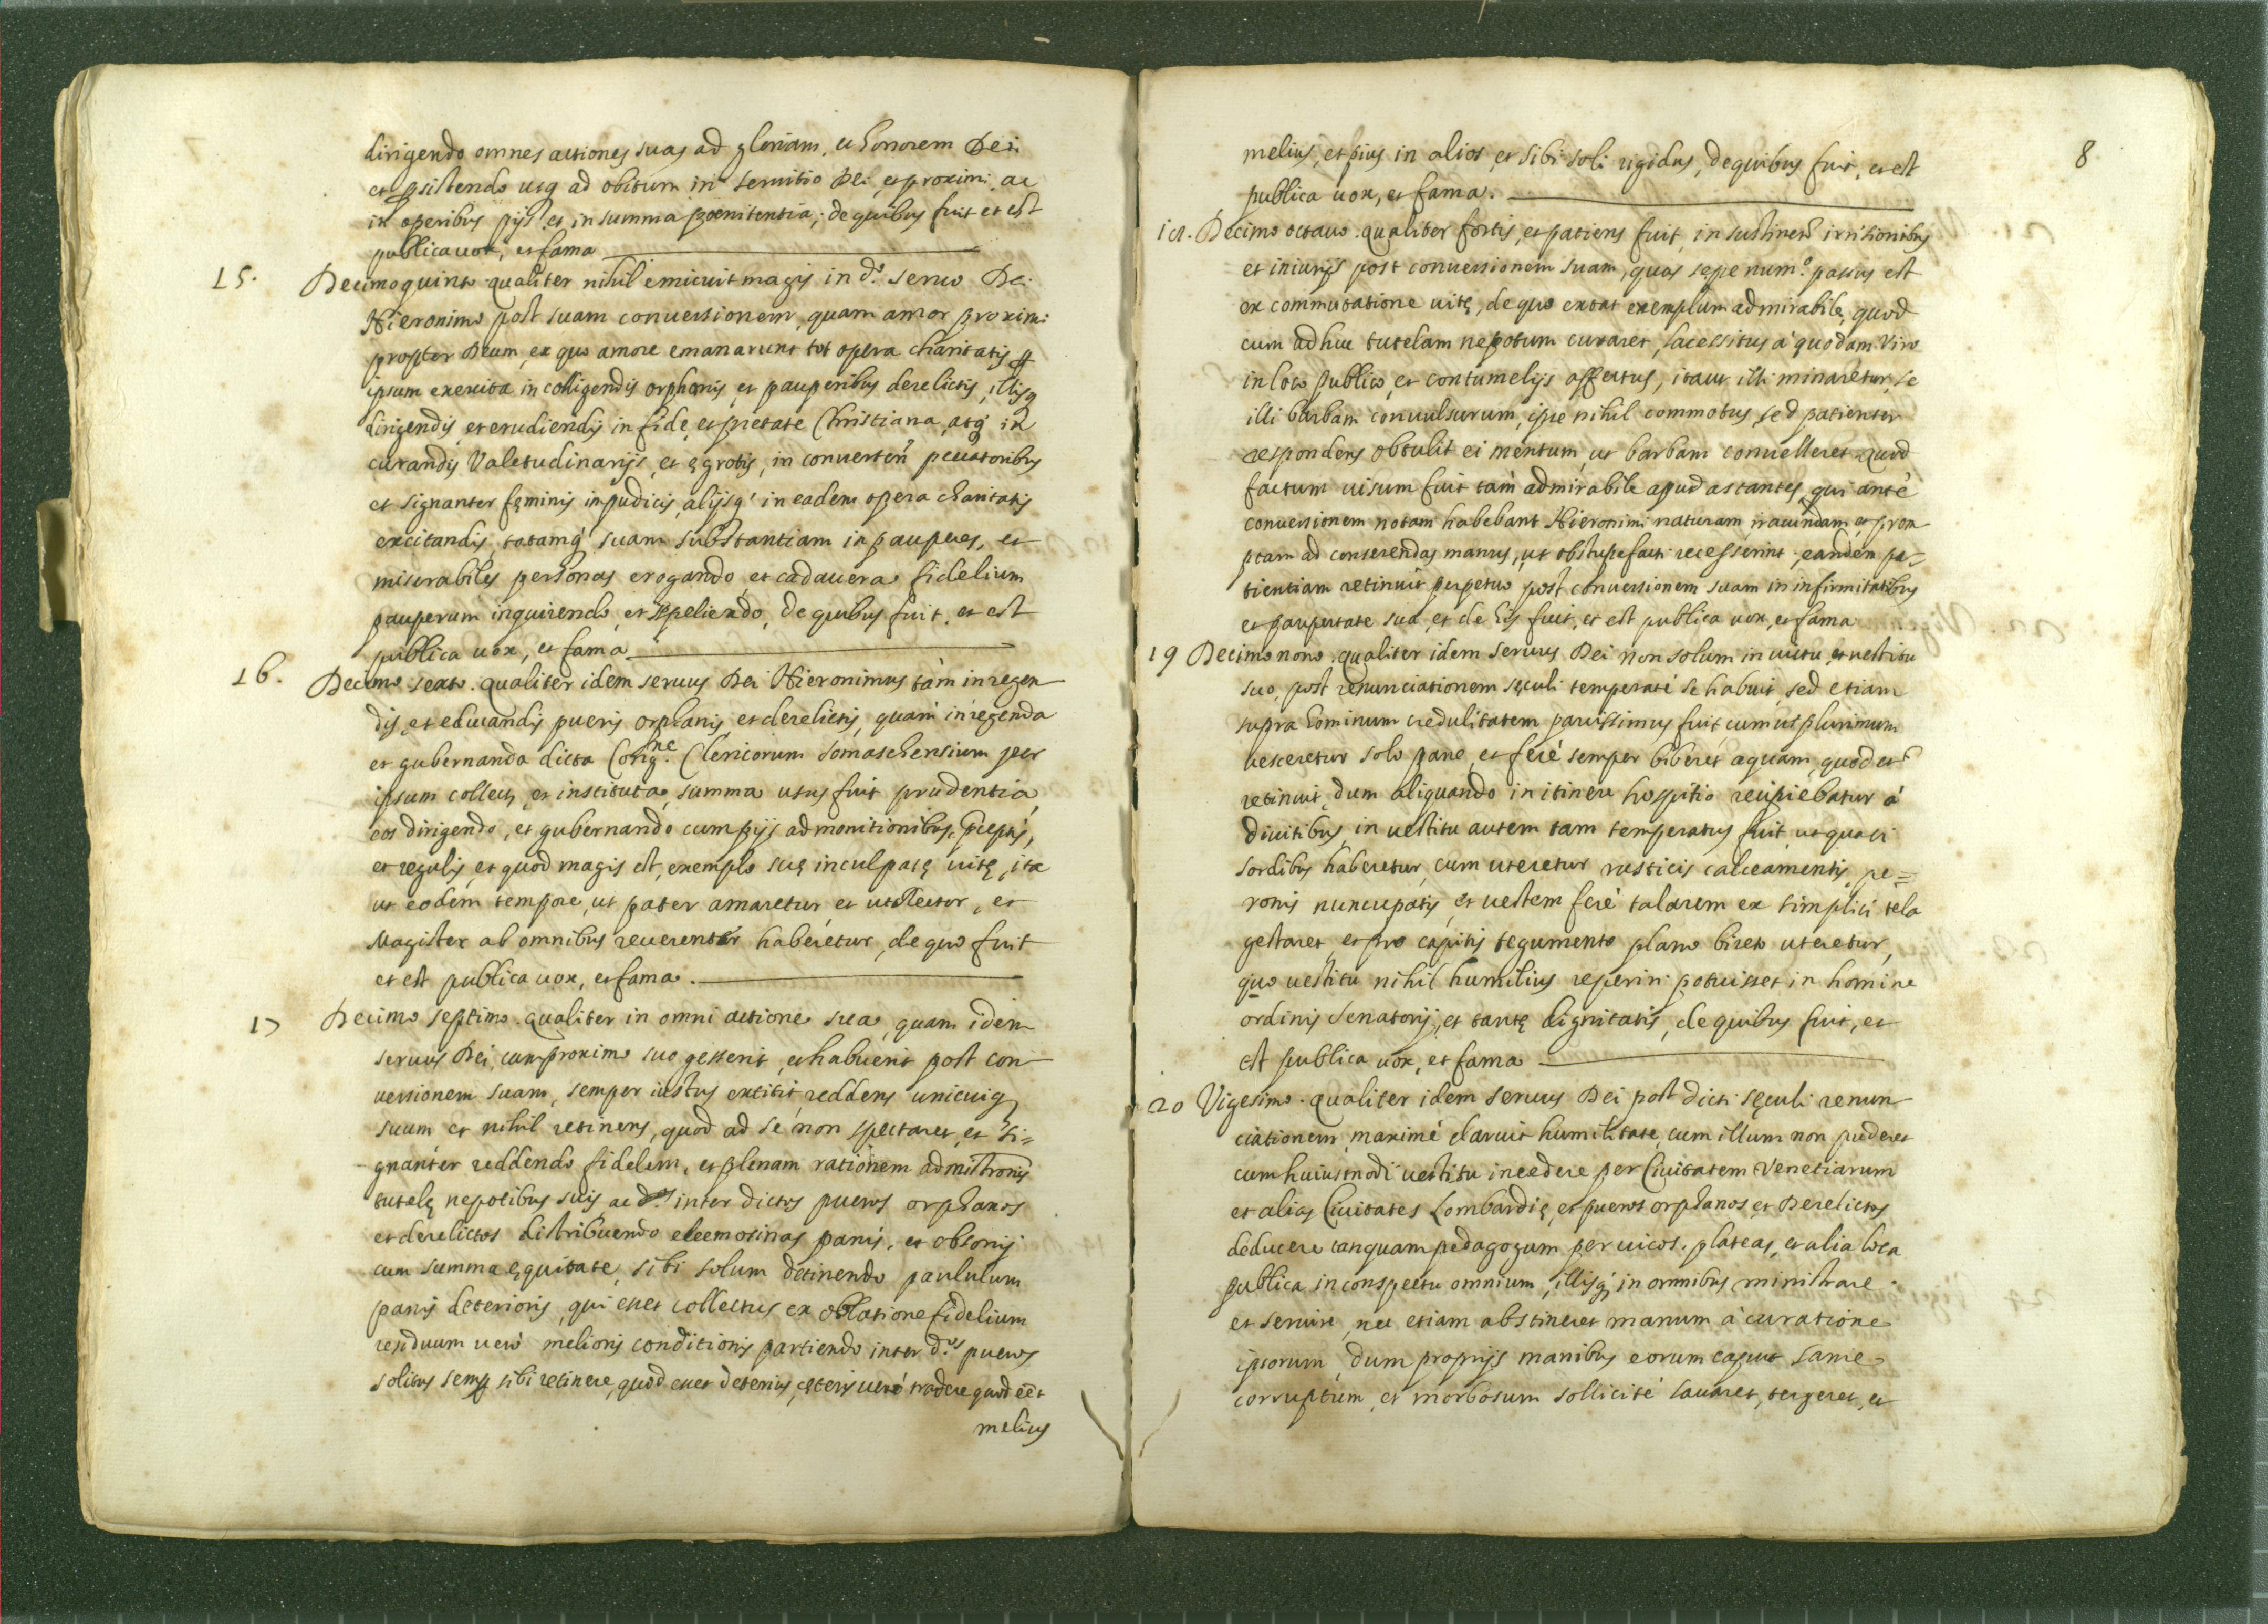 dirigendo omnes actiones suas ad gloriam, et honorem Dei
et ꝑsistendo usq ad obitum in seruitio Dei, et proximi, ac
in operibus pijs, et in summa poenitentia; de quibus fuit et est
publica uox, et fama
15. Decimoquinto qualiter nihil emicuit magis in d.º seruo Dei
Hieronimo post suam conuersionem, quam amor proximi
propter Deum, ex quo amore emanarunt tot opera charitatis ꝑ
ipsum exercita in colligendis orphanis, et pauperibus derelictis, illisq
dirigendis, et erudiendis in fide, et pietate Christiana, atq' in
curandis Valetudinarijs, et ęgrotis, in conuerten peccatoribus
et signanter fęminis inpudicis, alijsq' in eadem opera charitatis
excitandis, totamq' suam substantiam in pauperes, et
miserabiles personas erogando, et cadauera fidelium
pauperum inquirendo, et sepeliendo, de quibus fuit, et est
publica uox, et fama
16. Decimo sexto. qualiter idem seruus Dei Hieronimus tàm in regen
dis, et educandis pueris orphanis, et derelictis, quàm in regenda
et gubernanda dicta Cong.ne Clericorum Somaschensium per
ipsum collecta, et instituta, summa usus fuit prudentia,
eos dirigendo, et gubernando cum pijs admonitionibus, p̄ceptis,
et regulis, et quod magis est, exemplo suę inculpatę uitę, ita
ut eodem tempore, ut pater amaretur, et ut Rector, et
Magister ab omnibus reuerenter haberetur, de quo fuit
et est publica uox, et fama.
17 Decimo septimo. qualiter in omni actione sua, quam idem
seruus Dei, cum proximo suo gesserit, et habuerit post con
uersionem suam, semper iustus extitit, reddens unicuiq
suum et nihil retinens, quod ad se non spectaret, et si=
gnanter reddendo fidelem, et plenam rationem admistronis
tutelę nepotibus suis, ac d.os inter dictos pueros orphanos
et derelictos distribuendo eleemosinas panis, et obsonij
cum summa ęquitate, sibi solum detinendo paululum
panis deterioris, qui esset collectus ex oblatione fidelium
residuum uero melioris conditionis partiendo inter d.os pueros
solitus semꝑ sibi retinere, quod esset deterius, cęteris uerò tradere quod eēt
melius
8
melius, et pius in alios, et sibi soli rigidus, de quibus fuit, et est
publica uox, et fama.
18. Decimo octauo. qualiter fortis, et patiens fuit, in sustinen irrisionibus
et iniurijs post conuersionem suam, quas sepe num.º passus est
ex commutatione uitę, de quo extat exemplum admirabile, quod
cum adhuc tutelam nepotum curaret, lacessitus à quodam Viro
in loco publico, et contumelijs affectus, itaut illi minaretur, se
illi barbam conuulsurum, ipse nihil commotus, sed patienter
respondens obtulit ei mentum, ut barbam conuelleret quod
factum uisum fuit tàm admirabile apud astantes, qui antè
conuersionem notam habebant Hieronimi naturam iracundam, et prom
ptam ad conserendas manus, ut obstupefacti recesserint. eandem pa=
tientiam retinuit perpetuo post conuersionem suam in infirmitatibus
et paupertate sua, et de his fuit, et est publica uox, et fama
19 Decimo nono. qualiter idem seruus Dei non solum in uictu, et uestitu
suo, post renunciationem sęculi temperatè se habuit, sed etiam
supra hominum credulitatem parcissimus fuit, cum ut plurimum
uesceretur solo pane, et ferè semper biberet aquam, quod et
retinuit, dum aliquando in itinere hospitio recipiebatur à
diuitibus, in uestitu autem tam temperatus fuit, ut quasi
sordibus haberetur, cum uteretur rusticis calceamentis, pe=
ronis nuncupatis, et uestem ferè talarem ex simplici tela
gestaret, et pro capitis tegumento plano bireto uteretur,
quo uestitu nihil humilius reperiri potuisset in homine
ordinis Senatorij, et tantę dignitatis, de quibus fuit, et
est publica uox, et fama
20 Vigesimo. qualiter idem seruus Dei post dicti sęculi renun
ciationem, maximè claruit humilitate, cum illum non puderet
cum huiusmodi uestitu incedere per Ciuitatem Venetiarum
et alias Ciuitates Lombardię, et pueros orphanos et Derelictos
deducere tanquam pedagogum per uicos, plateas, et alia loca
publica in conspectu omnium, illisq' in omnibus ministrare
et seruire, nec etiam abstineret manum à curatione
ipsorum, dum proprijs manibus eorum caput sanie
corruptum, et morbosum sollicitè lauaret, tergeret, et